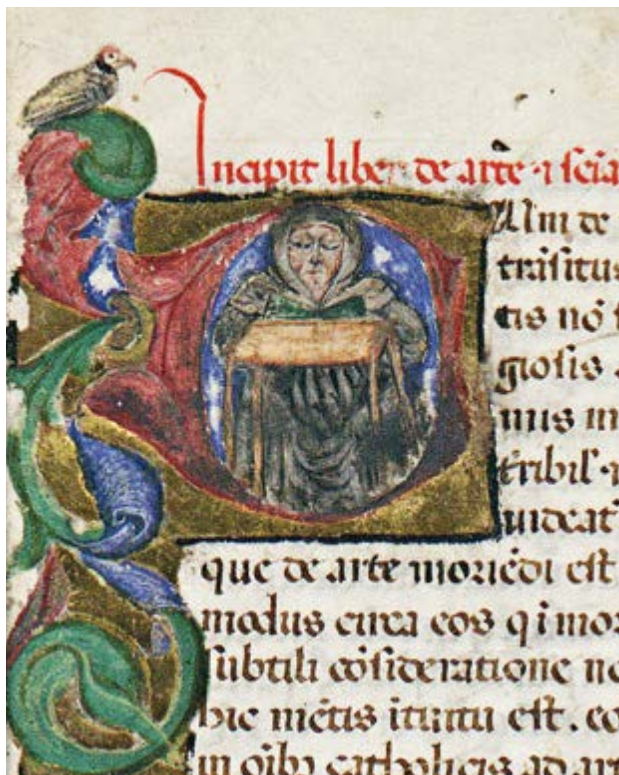 Incipit liber de arte ⁊ scīa
Cum de
trāsitus
tis nō
giosis
mus in
tribil'
uideat᷑
que de arte moriēdi est
modus circa eos q i mor
subtili cōsideratione no
hic mētis ītuitu est. eo
in oībȝ catholicis ad art